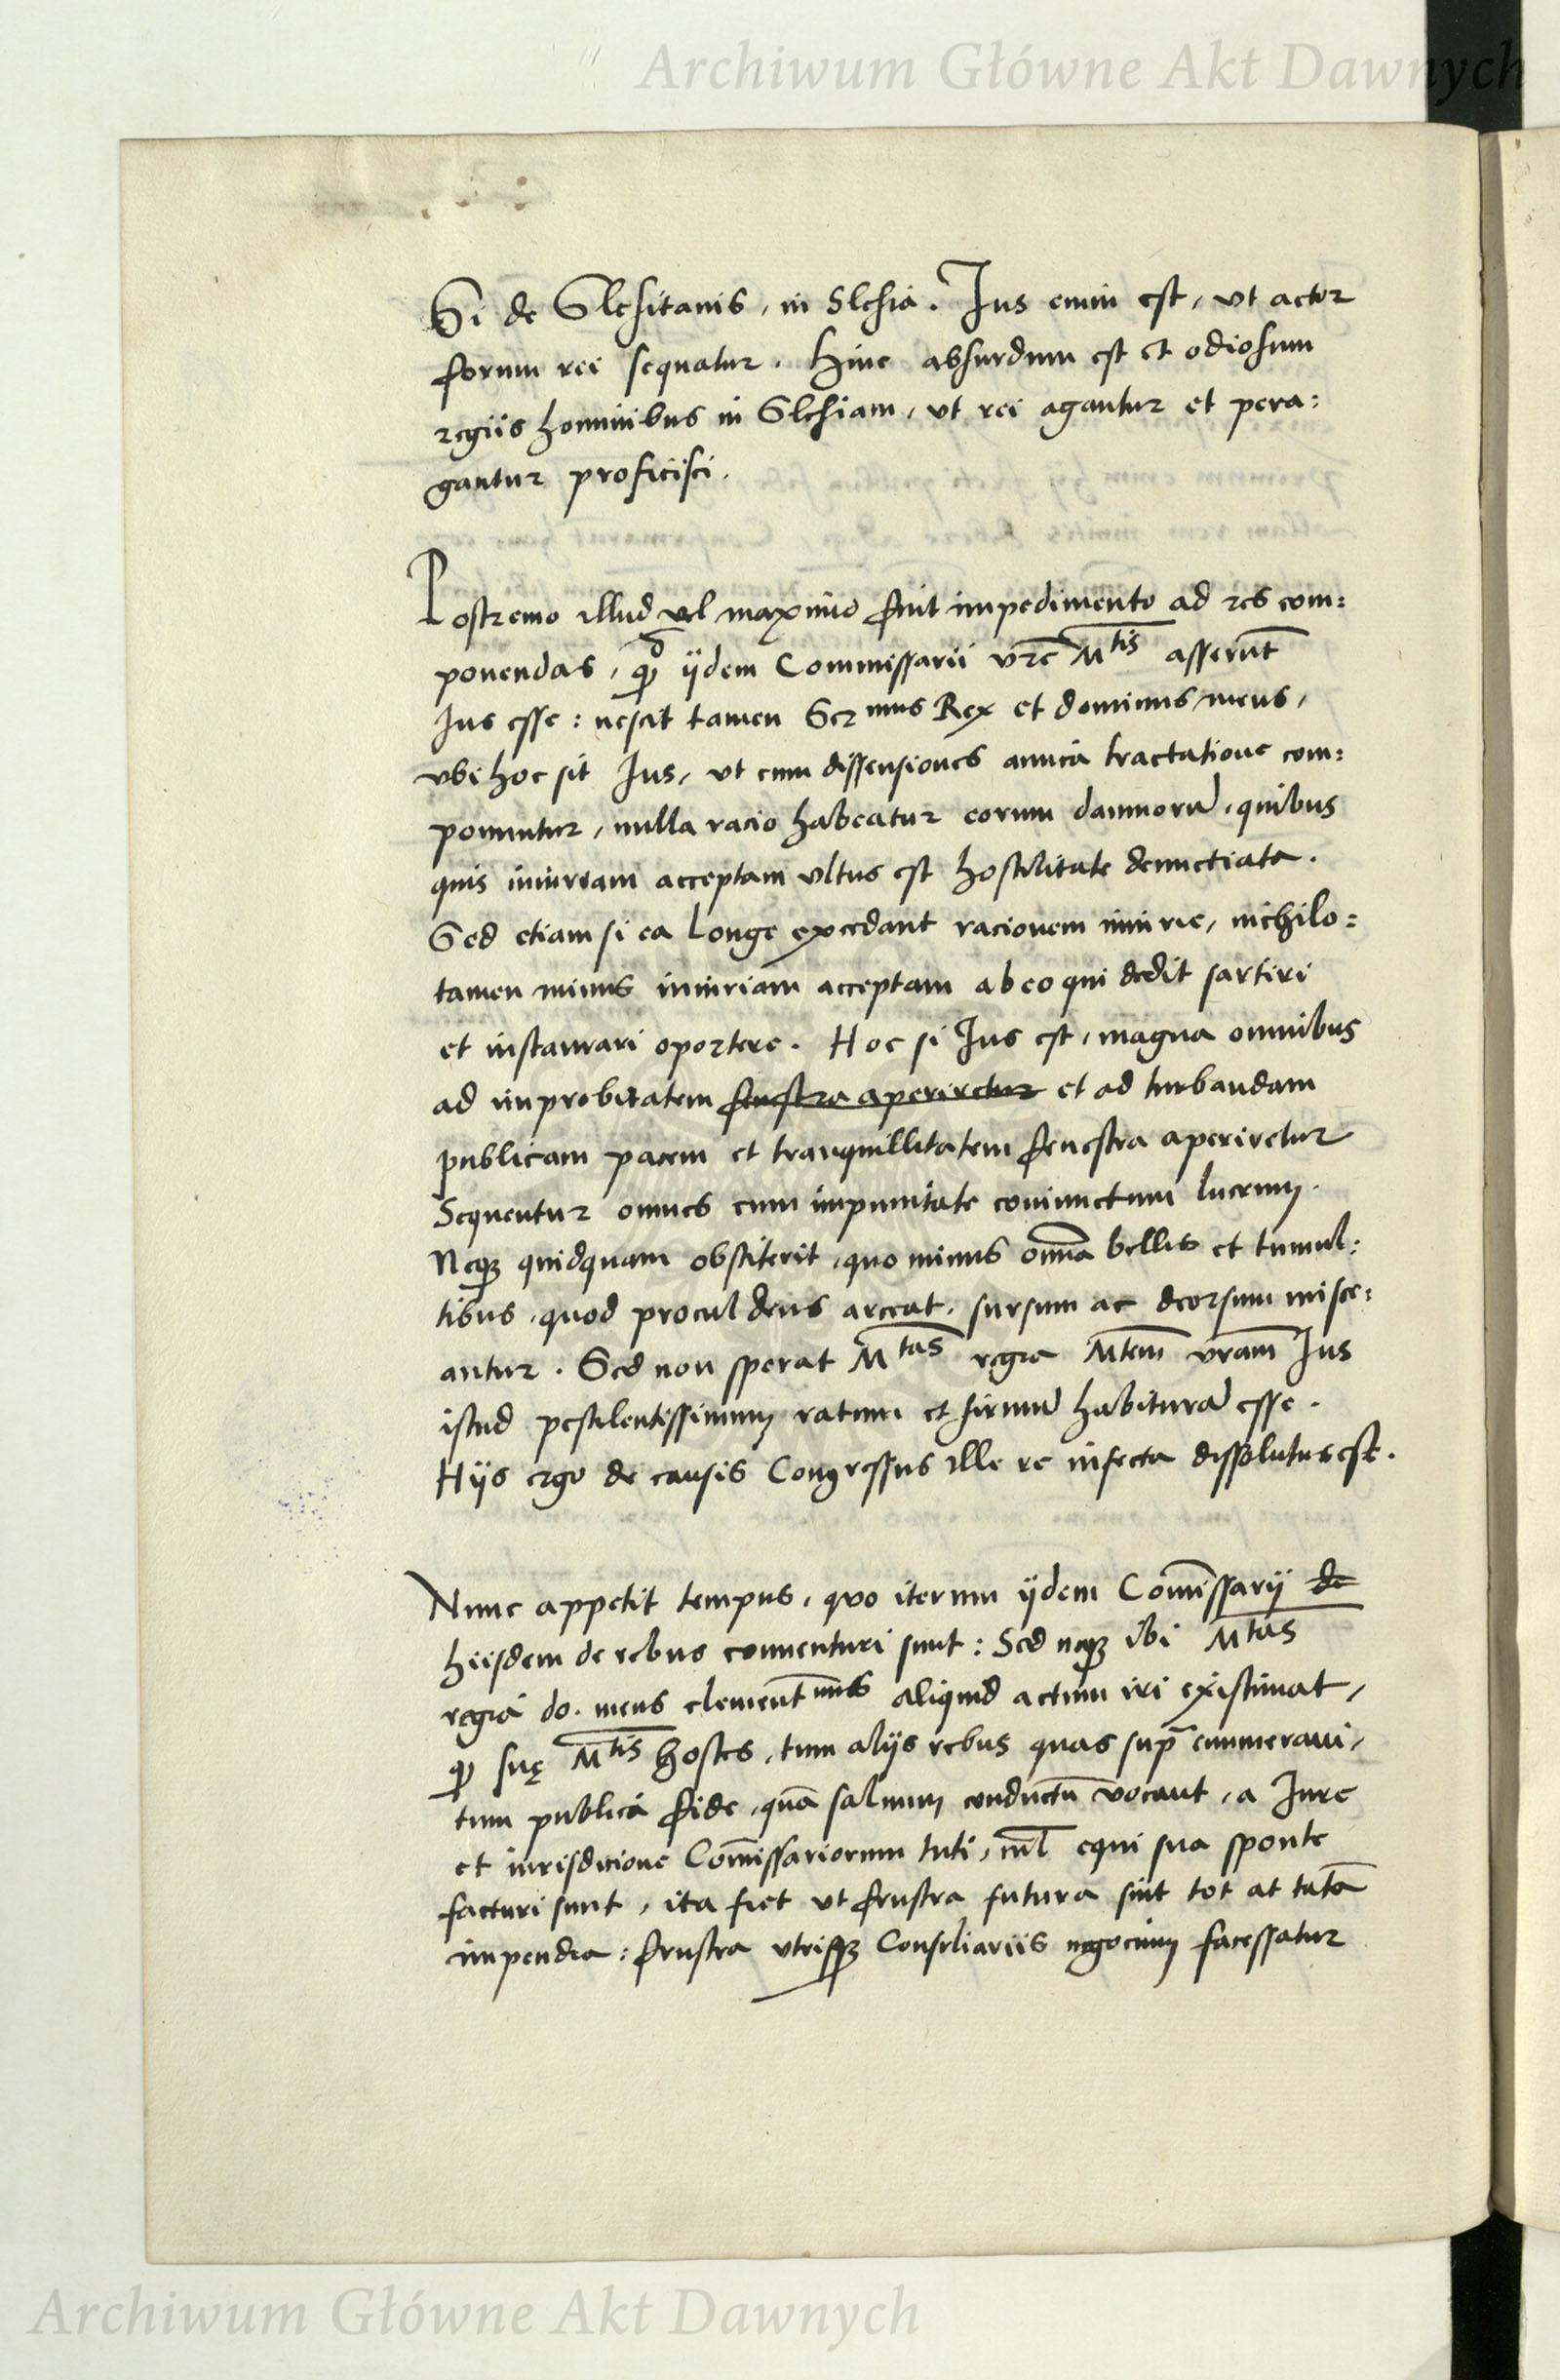 Archiwum Główne Akt Dawnych
Si de Slesitanis, in Slesia. Ius enim est, ut actor
forum rei sequatur. Hinc absurdum est et odiosum
regiis hominibus in Slesiam, ut rei agantur et pera:
gantur proficisci.
Postremo illud vel maximo fuit impedimento ad res com:
ponendas, qd ijdem Commissarii vre Mtis asserunt
Ius esse: nescit tamen Sermus Rex et dominus meus,
vbi hoc sit Ius, ut cum dissensiones amica tractatione com:
ponuntur, nulla racio habeatur eorum damnorum, quibus
quis iniuriam acceptam vltus est hostilitate denunctiata.
Sed etiam si ea longe excedant racionem iniurie, nichilo:
tamen minus iniuriam acceptam ab eo qui dedit sartiri
et instaurari oportere. Hoc si Ius est, magna omnibus
ad improbitatem fenestra aperiretur et ad turbandam
publicam pacem et tranquillitatem fenestra aperiretur
Sequentur omnes cum impunitate coniunctum lucrum.
Neqz quidquam obstiterit, quo minus omnia bellis et tumul:
tibus, quod procul deus arceat, sursum ac deorsum misce:
antur. Sed non sperat Mtas regia Mtem vram Ius
istud pestilentissimum ratum et firmum habituram esse.
Hijs ergo de causis Congressus ille re infecta dissolutus est.
Nunc appetit tempus, quo iterum ijdem Comissarij de
hiisdem de rebus conuenturi sunt: Sed neqz ibi Mtas
regia do. meus clementmus aliquid actum iri existimat,
qd suę Mtis hostes, tum alijs rebus quas supra enumeraui,
tum publica fide, qua saluum conductu vocant, a Iure
et iurisdicione Comissariorum tuti, nil equi sua sponte
facturi sunt, ita fiet ut frustra futura sint tot at tata
impendia: frustra vtrisqz Consiliariis negocium facessatur
Archiwum Główne Akt Dawnych